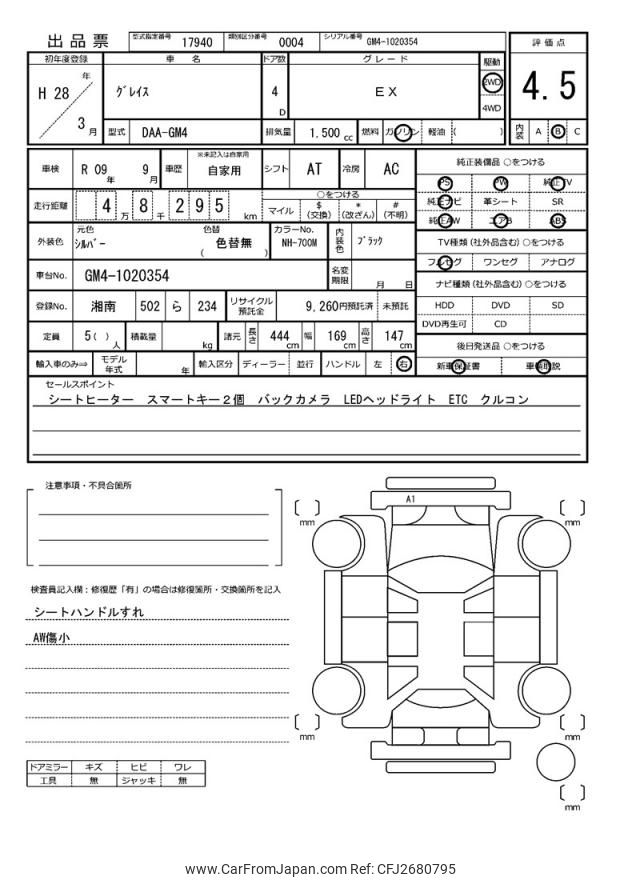 出品票 型式指定番号 17940 類別区分番号 0004 シリアル番号 GM4-1020354
評価点
4.5
内装 A B C
初年度登録 車名 ドア数 グレード 駆動
H 28 年 3 月 グレイス 4 D EX 2WD 4WD
型式 DAA-GM4 排気量 1.500 cc 燃料 ガソリン 軽油 ( )
車検 R 09 年 9 月 車歴 ※未記入は自家用 自家用 シフト AT 冷房 AC
走行距離 4 万 8 千 2 9 5 km
○をつける
マイル $(交換) *(改ざん) #(不明)
外装色 元色 シルバー 色替 ( 色替無 ) カラーNo. NH-700M 内装色 ブラック
車台No. GM4-1020354 名変期限 月 日
登録No. 湘南 502 ら 234 リサイクル預託金 9,260円預託済 未預託
定員 5( ) 人 積載量 kg 諸元 長さ 444 cm 幅 169 cm 高さ 147 cm
輸入車のみ⇒ モデル年式 年 輸入区分 ディーラー 並行 ハンドル 左 右
純正装備品 ○をつける
PS PW 純正TV
純正ナビ 革シート SR
純正AW エアB ABS
TV種類 (社外品含む) ○をつける
フルセグ ワンセグ アナログ
ナビ種類 (社外品含む) ○をつける
HDD DVD SD
DVD再生可 CD
後日発送品 ○をつける
新車保証書 車輌取説
セールスポイント
シートヒーター スマートキー2個 バックカメラ LEDヘッドライト ETC クルコン
注意事項・不具合箇所
検査員記入欄:修復歴「有」の場合は修復箇所・交換箇所を記入
シートハンドルすれ
AW傷小
ドアミラー キズ ヒビ ワレ
工具 無 ジャッキ 無
A1
[ ] mm
[ ] mm
[ ] mm
[ ] mm
[ ] mm
www.CarFromJapan.com Ref: CFJ2680795